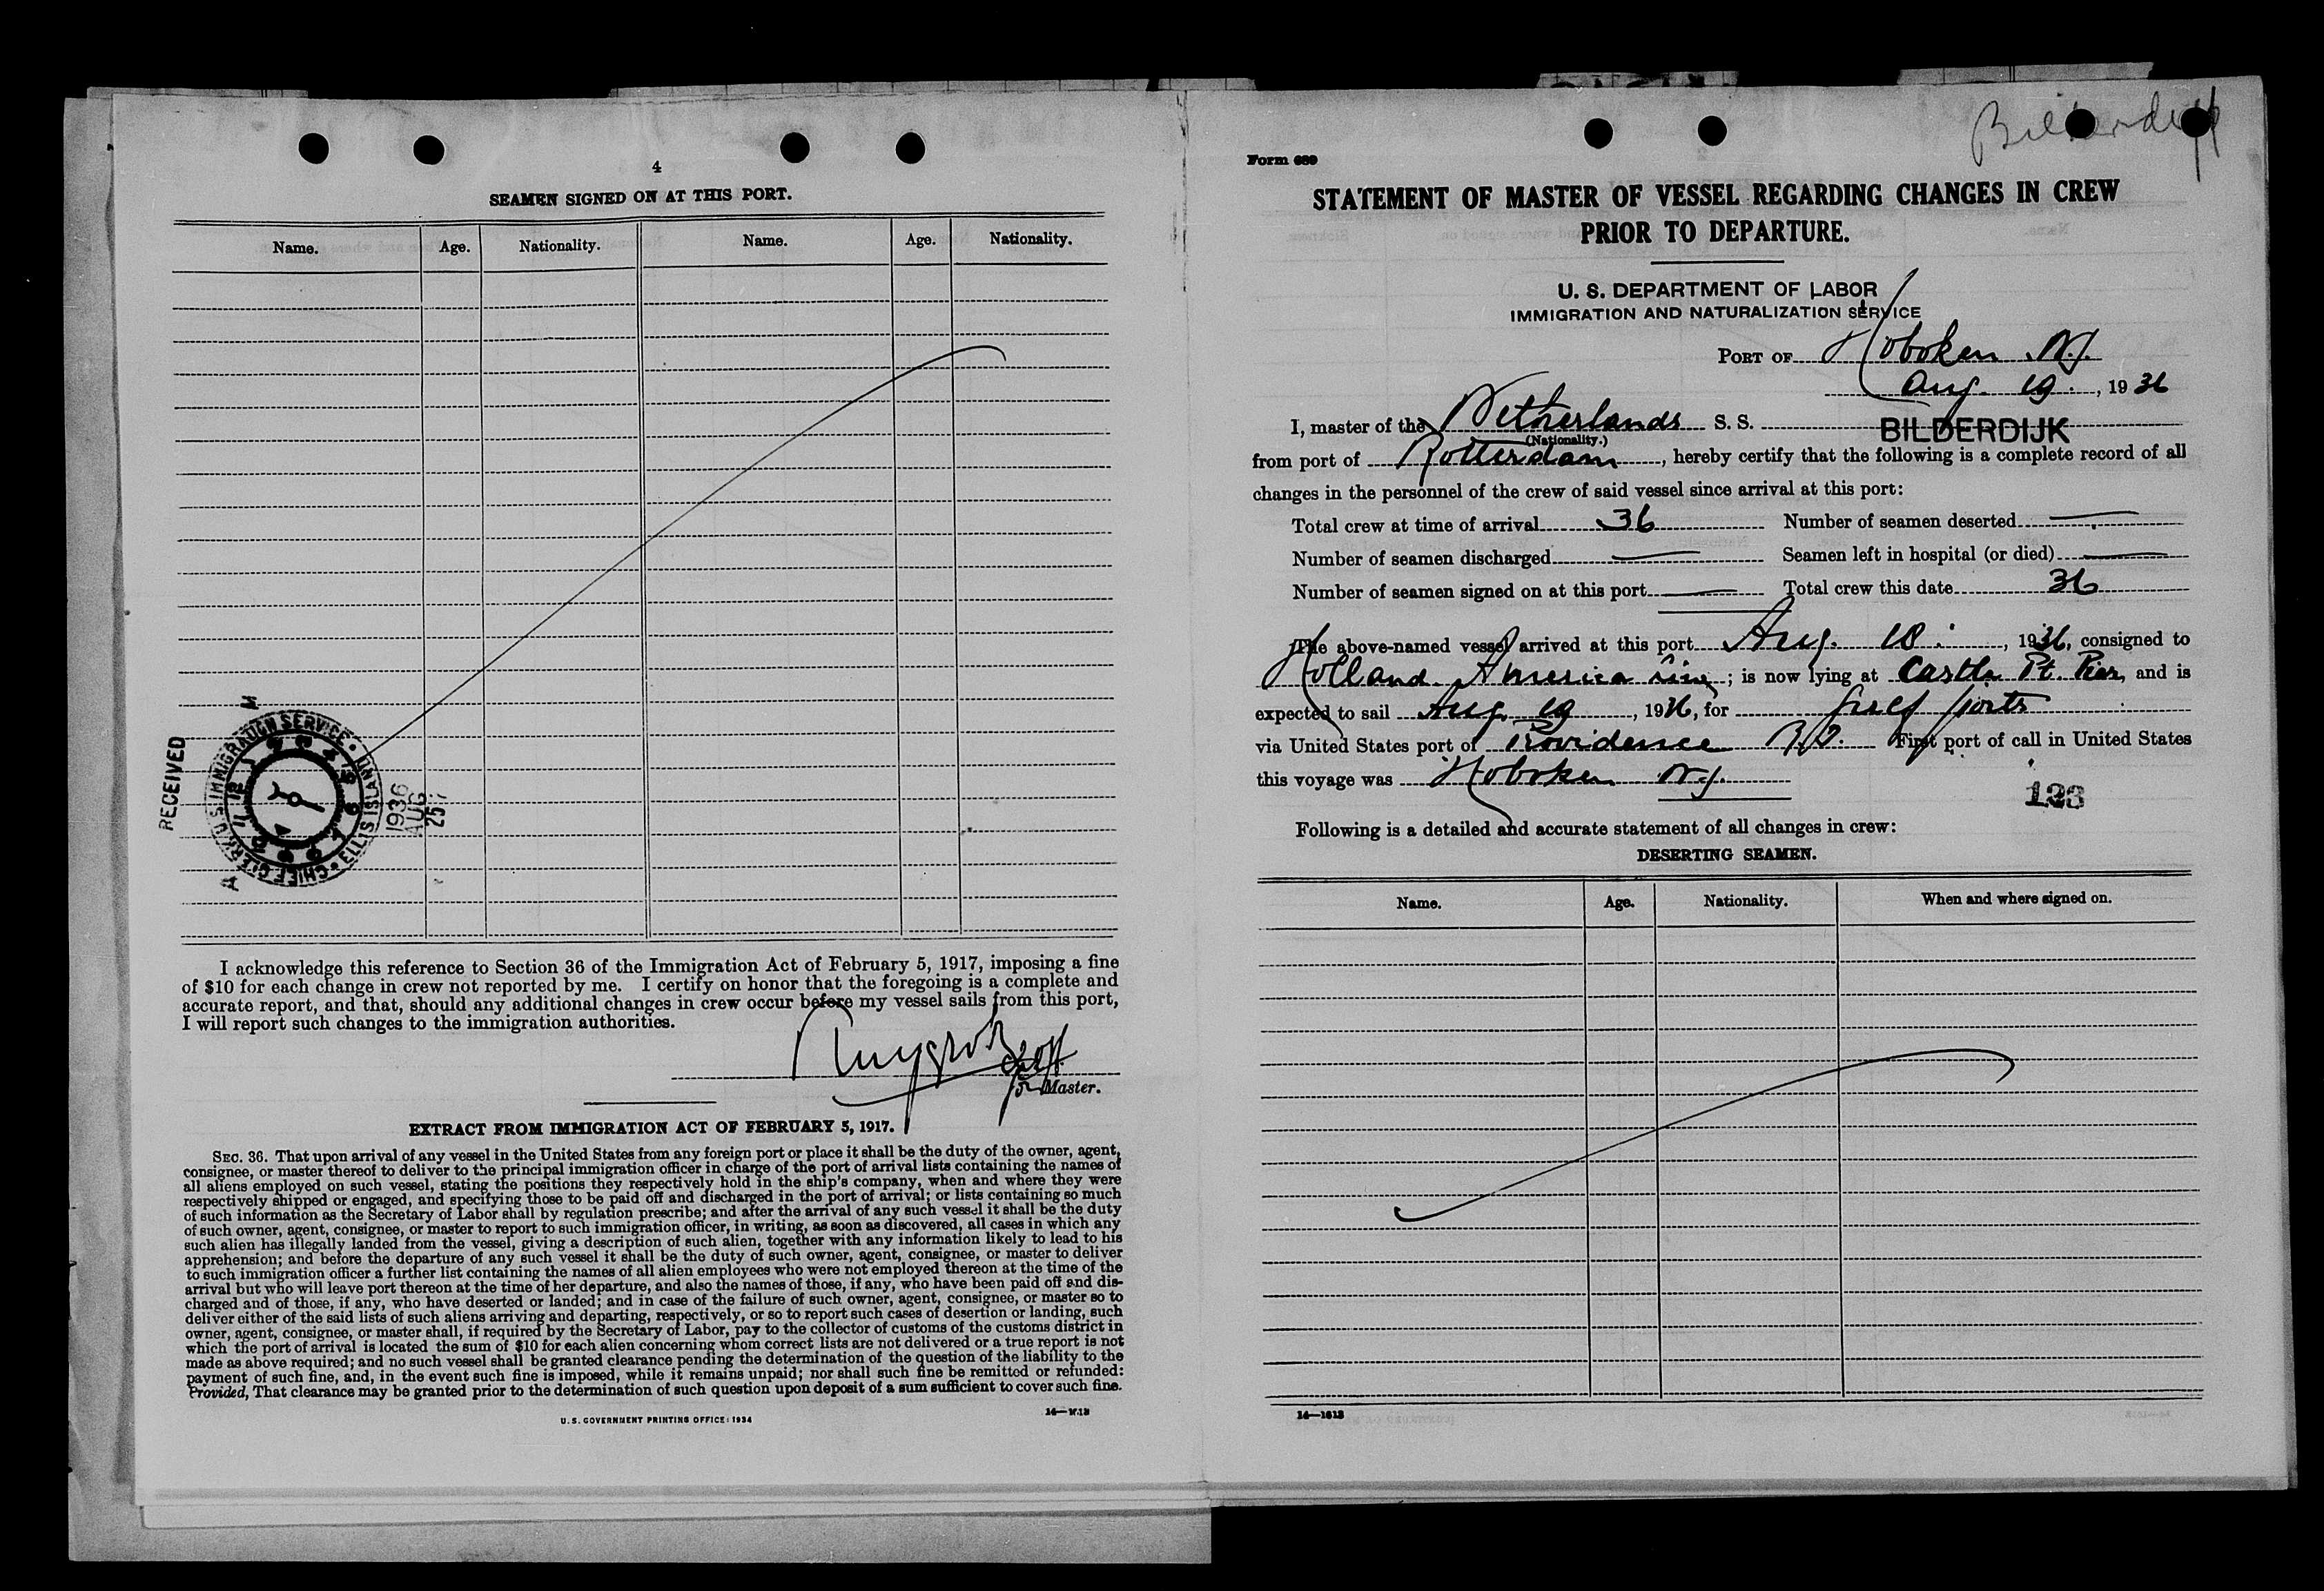 4
SEAMEN SIGNED ON AT THIS PORT.
Name. Age. Nationality. Name. Age. Nationality.
RECEIVED
CHIEF CLERK U.S. IMMIGRATION SERVICE • ELLIS ISLAND •
1936
AUG
25
I acknowledge this reference to Section 36 of the Immigration Act of February 5, 1917, imposing a fine
of $10 for each change in crew not reported by me. I certify on honor that the foregoing is a complete and
accurate report, and that, should any additional changes in crew occur before my vessel sails from this port,
I will report such changes to the immigration authorities.
for Master.
EXTRACT FROM IMMIGRATION ACT OF FEBRUARY 5, 1917.
SEC. 36. That upon arrival of any vessel in the United States from any foreign port or place it shall be the duty of the owner, agent,
consignee, or master thereof to deliver to the principal immigration officer in charge of the port of arrival lists containing the names of
all aliens employed on such vessel, stating the positions they respectively hold in the ship's company, when and where they were
respectively shipped or engaged, and specifying those to be paid off and discharged in the port of arrival; or lists containing so much
of such information as the Secretary of Labor shall by regulation prescribe; and after the arrival of any such vessel it shall be the duty
of such owner, agent, consignee, or master to report to such immigration officer, in writing, as soon as discovered, all cases in which any
such alien has illegally landed from the vessel, giving a description of such alien, together with any information likely to lead to his
apprehension; and before the departure of any such vessel it shall be the duty of such owner, agent, consignee, or master to deliver
to such immigration officer a further list containing the names of all alien employees who were not employed thereon at the time of the
arrival but who will leave port thereon at the time of her departure, and also the names of those, if any, who have been paid off and dis-
charged and of those, if any, who have deserted or landed; and in case of the failure of such owner, agent, consignee, or master so to
deliver either of the said lists of such aliens arriving and departing, respectively, or so to report such cases of desertion or landing, such
owner, agent, consignee, or master shall, if required by the Secretary of Labor, pay to the collector of customs of the customs district in
which the port of arrival is located the sum of $10 for each alien concerning whom correct lists are not delivered or a true report is not
made as above required; and no such vessel shall be granted clearance pending the determination of the question of the liability to the
payment of such fine, and, in the event such fine is imposed, while it remains unpaid; nor shall such fine be remitted or refunded:
Provided, That clearance may be granted prior to the determination of such question upon deposit of a sum sufficient to cover such fine.
U. S. GOVERNMENT PRINTING OFFICE: 1934
Bilderdijk
Form 689
STATEMENT OF MASTER OF VESSEL REGARDING CHANGES IN CREW
PRIOR TO DEPARTURE.
U. S. DEPARTMENT OF LABOR
IMMIGRATION AND NATURALIZATION SERVICE
PORT OF Hoboken N.J.
Aug. 19., 1936
I, master of the Netherlands S. S. BILDERDIJK
(Nationality.)
from port of Rotterdam, hereby certify that the following is a complete record of all
changes in the personnel of the crew of said vessel since arrival at this port:
Total crew at time of arrival 36 Number of seamen deserted —
Number of seamen discharged — Seamen left in hospital (or died) —
Number of seamen signed on at this port — Total crew this date 36
The above-named vessel arrived at this port Aug. 18., 1936, consigned to
Holland America Line; is now lying at Castle Pt. Pier, and is
expected to sail Aug. 19, 1936, for Gulf ports
via United States port of Providence R.I. First port of call in United States
this voyage was Hoboken N.J.
123
Following is a detailed and accurate statement of all changes in crew:
DESERTING SEAMEN.
Name. Age. Nationality. When and where signed on.
14—1613